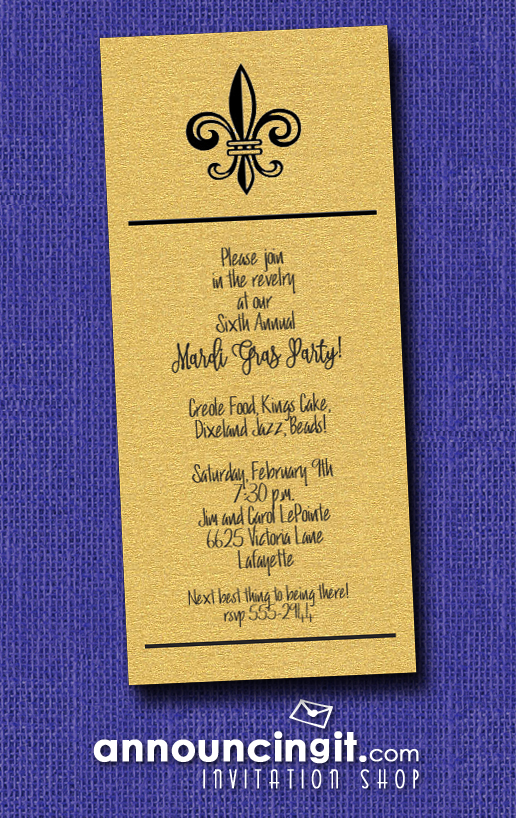 Please join
in the revelry
at our
Sixth Annual
Mardi Gras Party!
Creole Food, Kings Cake,
Dixeland Jazz, Beads!
Saturday, February 9th
7:30 p.m.
Jim and Carol LePointe
6625 Victoria Lane
Lafayette
Next best thing to being there!
rsvp 555-2944
announcingit.com
INVITATION SHOP